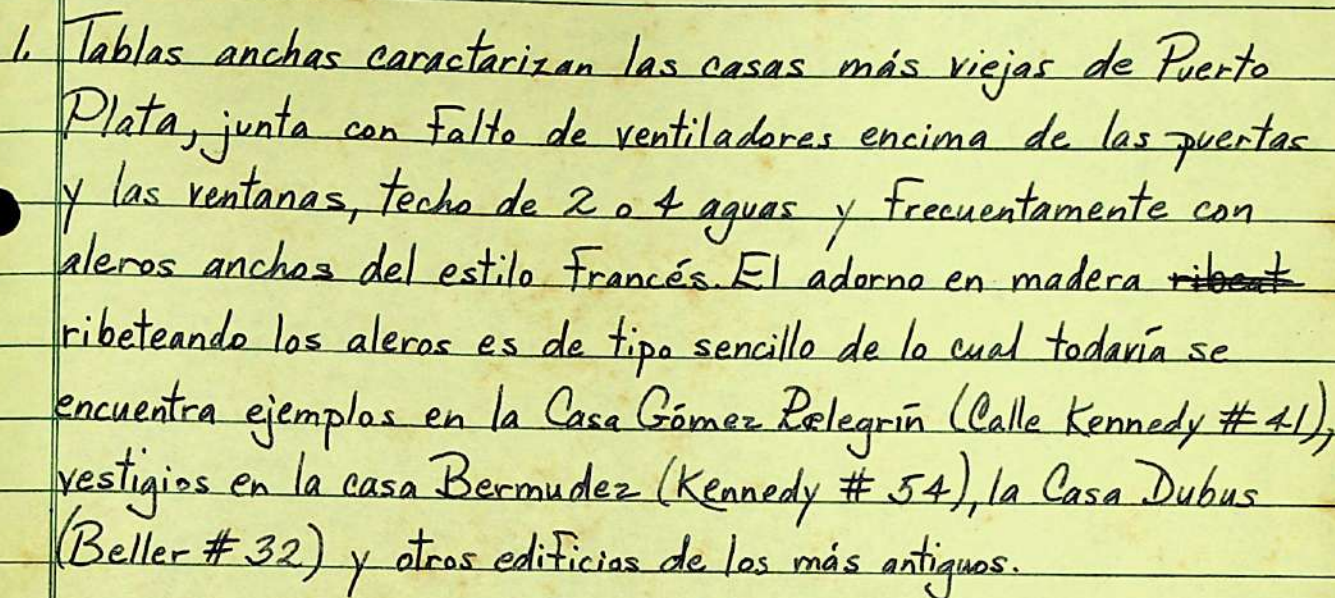 1. Tablas anchas caractarizan las casas más viejas de Puerto
Plata, junta con falto de ventiladores encima de las puertas
y las ventanas, techo de 2 o 4 aguas y frecuentamente con
aleros anchos del estilo francés. El adorno en madera ribeat
ribeteando los aleros es de tipo sencillo de lo cual todavía se
encuentra ejemplos en la Casa Gómez Pelegrín (Calle Kennedy # 41),
vestigios en la casa Bermudez (Kennedy # 54), la Casa Dubus
(Beller # 32) y otros edificios de los más antiguos.